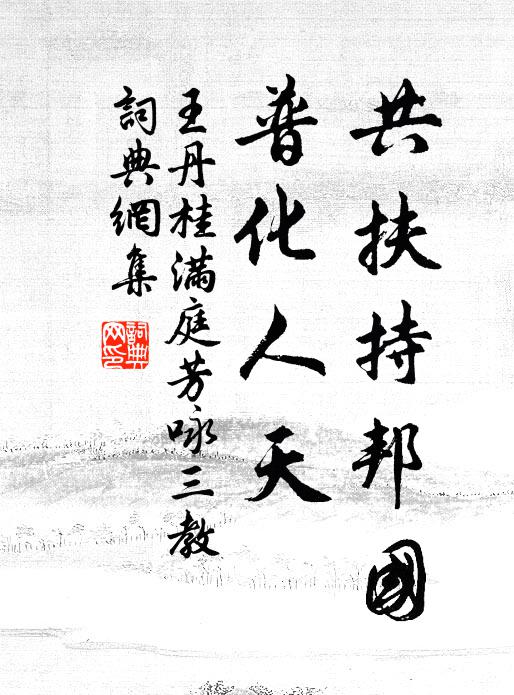 共扶持邦國
普化人天
王丹桂滿庭芳咏三教
詞典網集
詞典网印